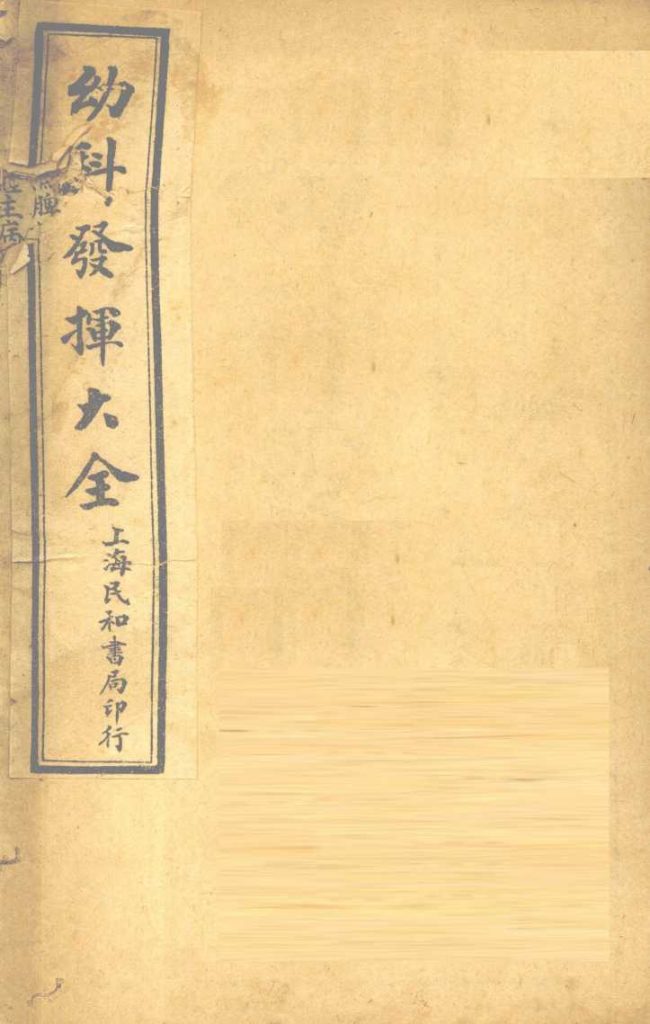 幼科發揮大全
上海民和書局印行
主病
脾